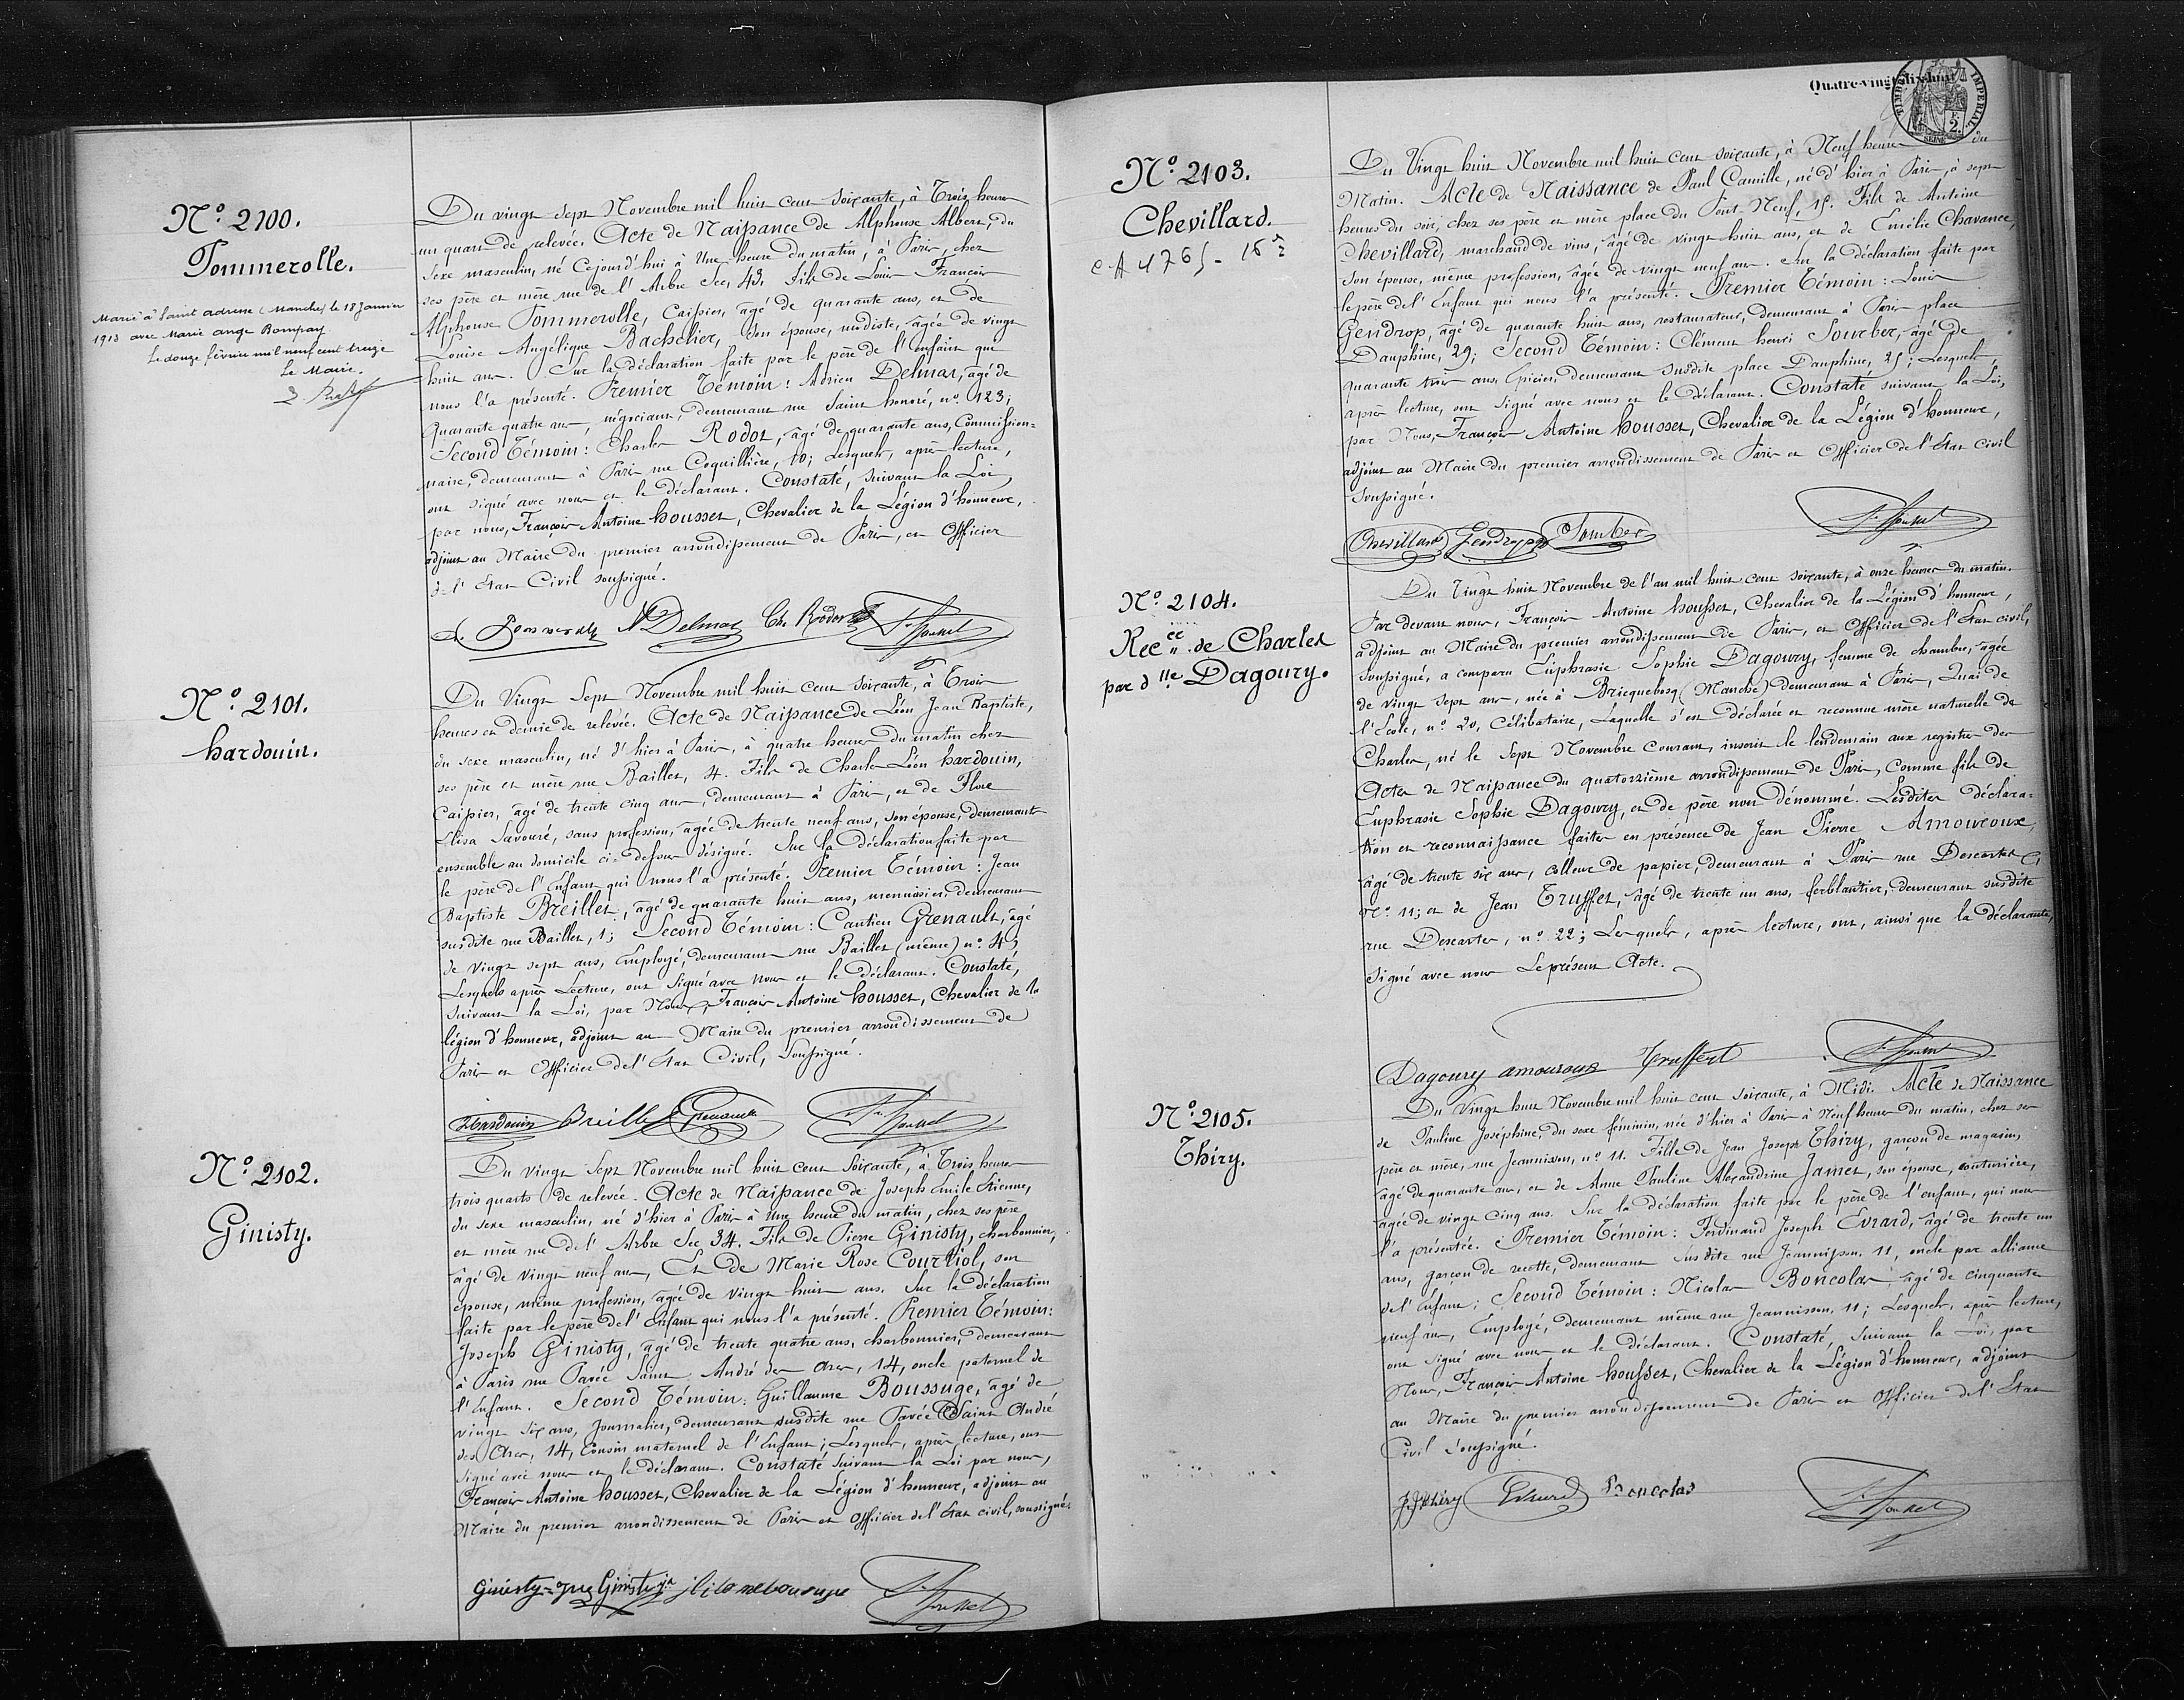 N.º 2100.
Pommerolle.
Marié à Saint adresse (Manche) le 18 Janvier
1913 avec Marie ange Rompay
Le douze février mil neuf cent treize
Le Maire.
Du vingt sept Novembre mil huit cent soixante, à Trois heures
un quart de relevée. Acte de Naissance de Alphonse Albert, du
sexe masculin, né Cejourd'hui à Une heure du matin, à Paris, chez
ses père et mère rue de l'Arbre Sec, 43. Fils de Louis François
Alphonse Pommerolle, Caissier, âgé de quarante ans, et de
Louise Angélique Bachelier, son épouse, modiste, âgée de vingt
huit ans. Sur la déclaration faite par le père de l'enfant qui
nous l'a présenté. Premier Témoin: Adrien Delmas, âgé de
Quarante quatre ans, négociant, demeurant rue Saint honoré, nº 123;
Second Témoin: Charles Rodot, âgé de quarante ans, Commission=
naire, demeurant à Paris rue Coquillière, 10; Lesquels, après lecture,
ont signé avec nous et le déclarant. Constaté, suivant la Loi
par nous, François Antoine housset, Chevalier de la Légion d'honneur,
adjoint au Maire du premier arrondissement de Paris, et Officier
de l'état Civil soussigné.
Delmas Ch. Rodot
N.º 2101.
hardouin.
Du Vingt Sept Novembre mil huit cent soixante, à Trois
heures et demie de relevée. Acte de Naissance de Léon Jean Baptiste,
du sexe masculin, né d'hier à Paris, à quatre heures du matin chez
ses père et mère rue Baillet, 4. Fils de Charles Léon hardouin,
Caissier, âgé de trente cinq ans, demeurant à Paris, et de Flore
Elisa Savouré, sans profession, âgée de trente neuf ans, son épouse, demeurant
ensemble au domicile ci-dessus désigné. Sur la déclaration faite par
le père de l'Enfant qui nous l'a présenté. Premier Témoin: Jean
Baptiste Breillet, âgé de quarante huit ans, menuisier, demeurant
susdite rue Baillet, 1; Second Témoin: Cantien Grenault, âgé
de vingt sept ans, Employé, demeurant rue Baillet (même) nº 4;
Lesquels après Lecture, ont signé avec Nous et le déclarant. Constaté,
suivant la Loi, par Nous, François Antoine housset, Chevalier de la
légion d'honneur, adjoint au Maire du premier arrondissement de
Paris et Officier de l'État Civil, soussigné.
Hardouin Breillet Grenault
N.º 2102.
Ginisty.
Du vingt Sept Novembre mil huit cent Soixante, à Trois heures
trois quarts de relevée. Acte de Naissance de Joseph Emile Etienne,
du sexe masculin, né d'hier à Paris à Une heure du matin, chez ses père
et mère rue de l'Arbre Sec 34. Fils de Pierre Ginisty, charbonnier,
âgé de vingt neuf ans, Et de Marie Rose Courtiol, son
épouse, même profession, âgée de vingt huit ans. Sur la déclaration
faite par le père de l'Enfant qui nous l'a présenté. Premier Témoin:
Joseph Ginisty, âgé de trente quatre ans, charbonnier, demeurant
à Paris rue Pavée Saint André des Arcs, 14, oncle paternel de
l'Enfant. Second Témoin: Guillaume Boussuge, âgé de
vingt six ans, Journalier, demeurant susdite rue Pavée Saint André
des Arcs, 14, Cousin maternel de l'Enfant; Lesquels, après lecture, ont
signé avec nous et le déclarant. Constaté suivant la Loi par nous,
François Antoine housset, Chevalier de la Légion d'honneur, adjoint au
Maire du premier arrondissement de Paris et Officier de l'état civil, soussigné.
Ginisty
Quatre-vingt-dix-huit
TIMBRE IMPERIAL
2
SEINE
N.º 2103.
Chevillard.
Du Vingt huit Novembre mil huit cent soixante, à Neuf heures du
Matin. Acte de Naissance de Paul Camille, né d'hier à Paris, à sept
heures du soir, chez ses père et mère place du Pont-Neuf, 15. Fils de Antoine
Chevillard, marchand de vins, âgé de vingt huit ans, et de Emélie Chavance,
son épouse, même profession, âgée de vingt neuf ans. Sur la déclaration faite par
le père de l'Enfant qui nous l'a présenté. Premier Témoin: Louis
Gendrop, âgé de quarante huit ans, restaurateur, demeurant à Paris place
Dauphine, 29; Second Témoin: Clément henri Sourber, âgé de
quarante trois ans, Epicier, demeurant susdite place Dauphine, 25; Lesquels,
après lecture, ont signé avec nous et le déclarant. Constaté suivant la Loi,
par Nous, François Antoine housset, Chevalier de la Légion d'honneur,
adjoint au Maire du premier arrondissement de Paris et Officier de l'État civil
soussigné.
Chevillard
N.º 2104.
Rec.ce de Charles
par d.lle Dagoury.
Du Vingt huit Novembre de l'an mil huit cent soixante, à onze heures du matin.
Par devant nous, François Antoine housset, Chevalier de la Légion d'honneur,
adjoint au Maire du premier arrondissement de Paris, et Officier de l'État civil,
soussigné, a comparu Euphrasie Sophie Dagoury, femme de chambre, âgée
de vingt sept ans, née à Bricquebosq (Manche) demeurant à Paris, Quai de
l'Ecole, nº 20, Célibataire, Laquelle s'est déclarée et reconnue mère naturelle de
Charles, né le Sept Novembre courant, inscrit le lendemain aux registres des
Actes de Naissance du quatorzième arrondissement de Paris, Comme fils de
Euphrasie Sophie Dagoury, et de père non dénommé. Lesdites déclara=
tion et reconnaissance faites en présence de Jean Pierre Amouroux,
âgé de trente six ans, colleur de papier, demeurant à Paris rue Descartes
nº 11; et de Jean Truffet, âgé de trente un ans, ferblantier, demeurant susdite
rue Descartes, nº 22; Lesquels, après lecture, ont, ainsi que la déclarante,
signé avec nous Le présent Acte.
Dagoury amouroux truffet
N.º 2105.
Thiry.
Du Vingt huit Novembre mil huit cent soixante, à Midi. Acte de Naissance
de Pauline Joséphine, du sexe féminin, née d'hier à Paris à Neuf heures du matin, chez ses
père et mère, rue Jeannisson, nº 11. Fille de Jean Joseph Thiry, garçon de magasin,
âgé de quarante ans, et de Anne Pauline Alexandrine Jamet, son épouse, couturière,
âgée de vingt Cinq ans. Sur la déclaration faite par le père de l'enfant, qui nous
l'a présentée. Premier Témoin: Ferdinand Joseph Evrard, âgé de trente un
ans, garçon de recette, demeurant susdite rue Jeannisson, 11, oncle par alliance
de l'Enfant; Second Témoin: Nicolas Boncolas, âgé de cinquante
neuf ans, Employé, demeurant même rue Jeannisson, 11; Lesquels, après lecture,
ont signé avec nous et le déclarant. Constaté, suivant la Loi, par
Nous, François Antoine housset, Chevalier de la Légion d'honneur, adjoint
au Maire du premier arrondissement de Paris et Officier de l'État
Civil soussigné.
J. J. Thiry Evrard Boncolas